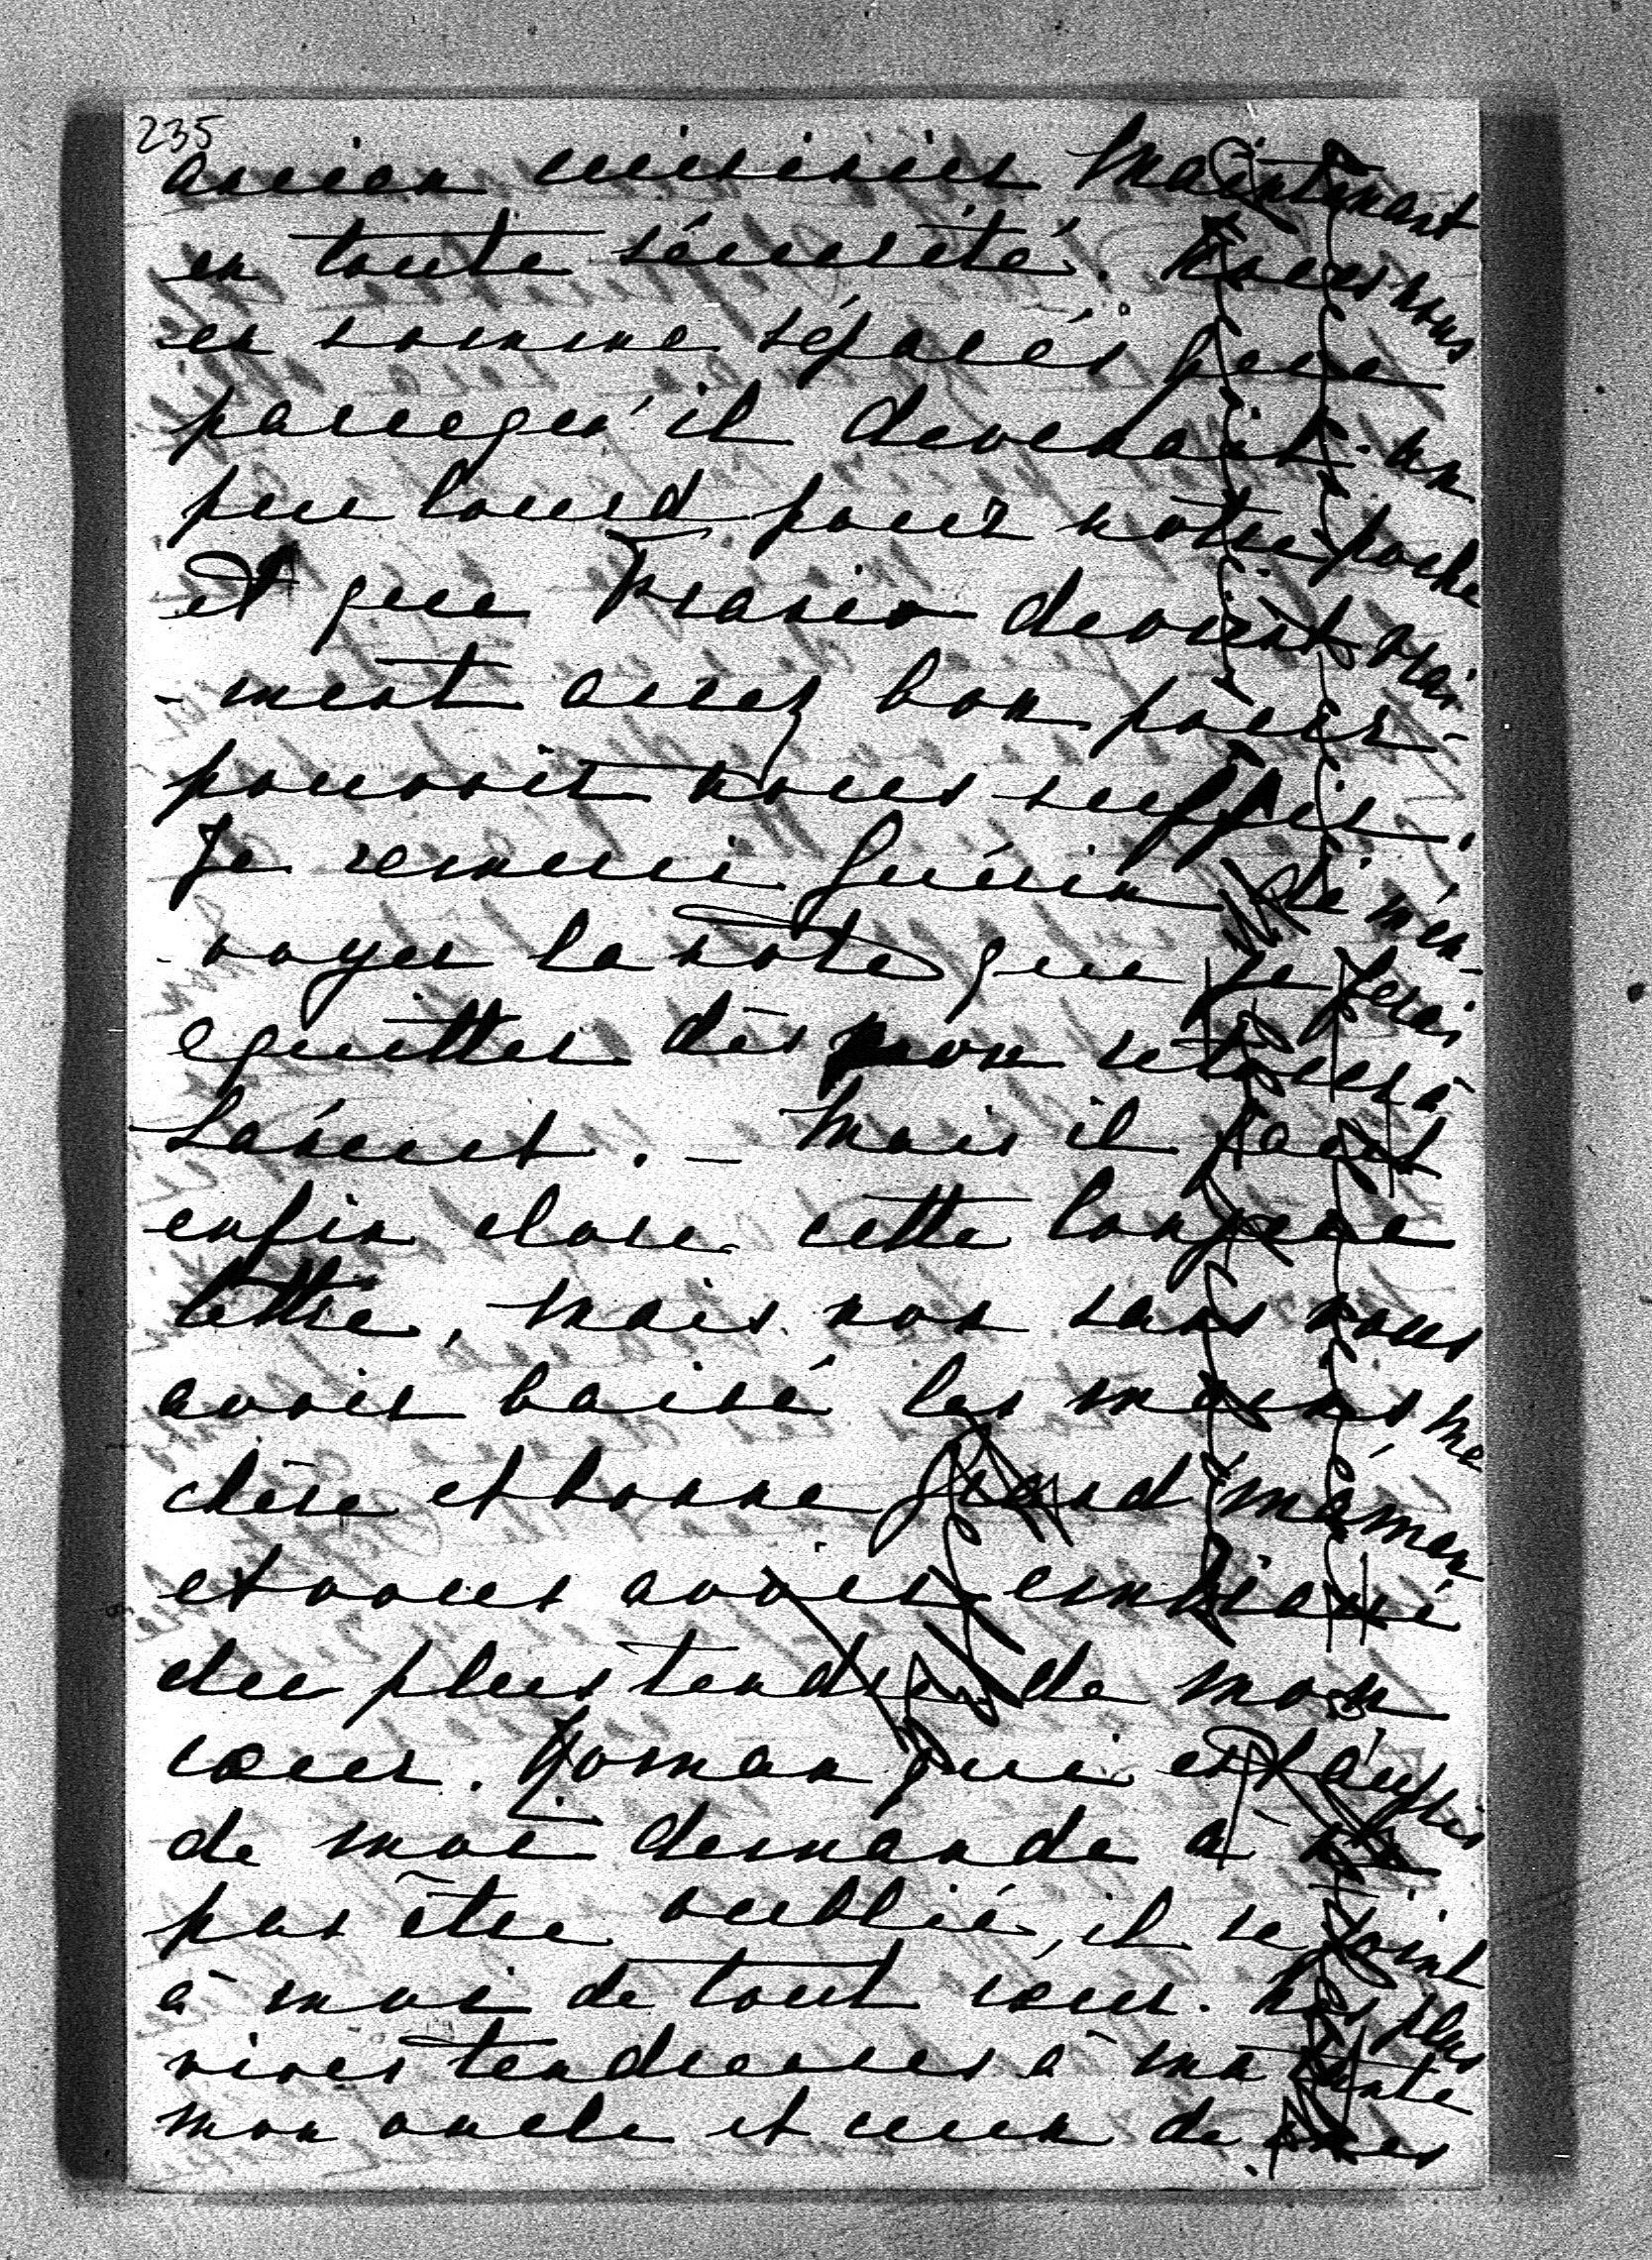 235
ancien cuisinier maintenant
en toute sécurité. Nous nous
en somme séparés
parcequ'il devenait un
peu lourd pour notre poche
et que devient vrai-
-ment assez bon pour
pouvoir nous suffir.
Je remerci Guérin de m'en-
-voyer la note que je ferai
equitter dès mon retour à
Łańcut. _ Mais il faut
enfin clore cette longue
lettre, mais non sans vous
avoir baisé les mains ma
chère et bonne Grand'maman
et vous avoir embrassé
du plus tendre de mon
cœur. Roman qui est auprès
de moi demande à ne
pas être oublié, il se joint
à moi de tout cœur. Nos plus
vives tendresses à ma tante
mon oncle et ceux de mes